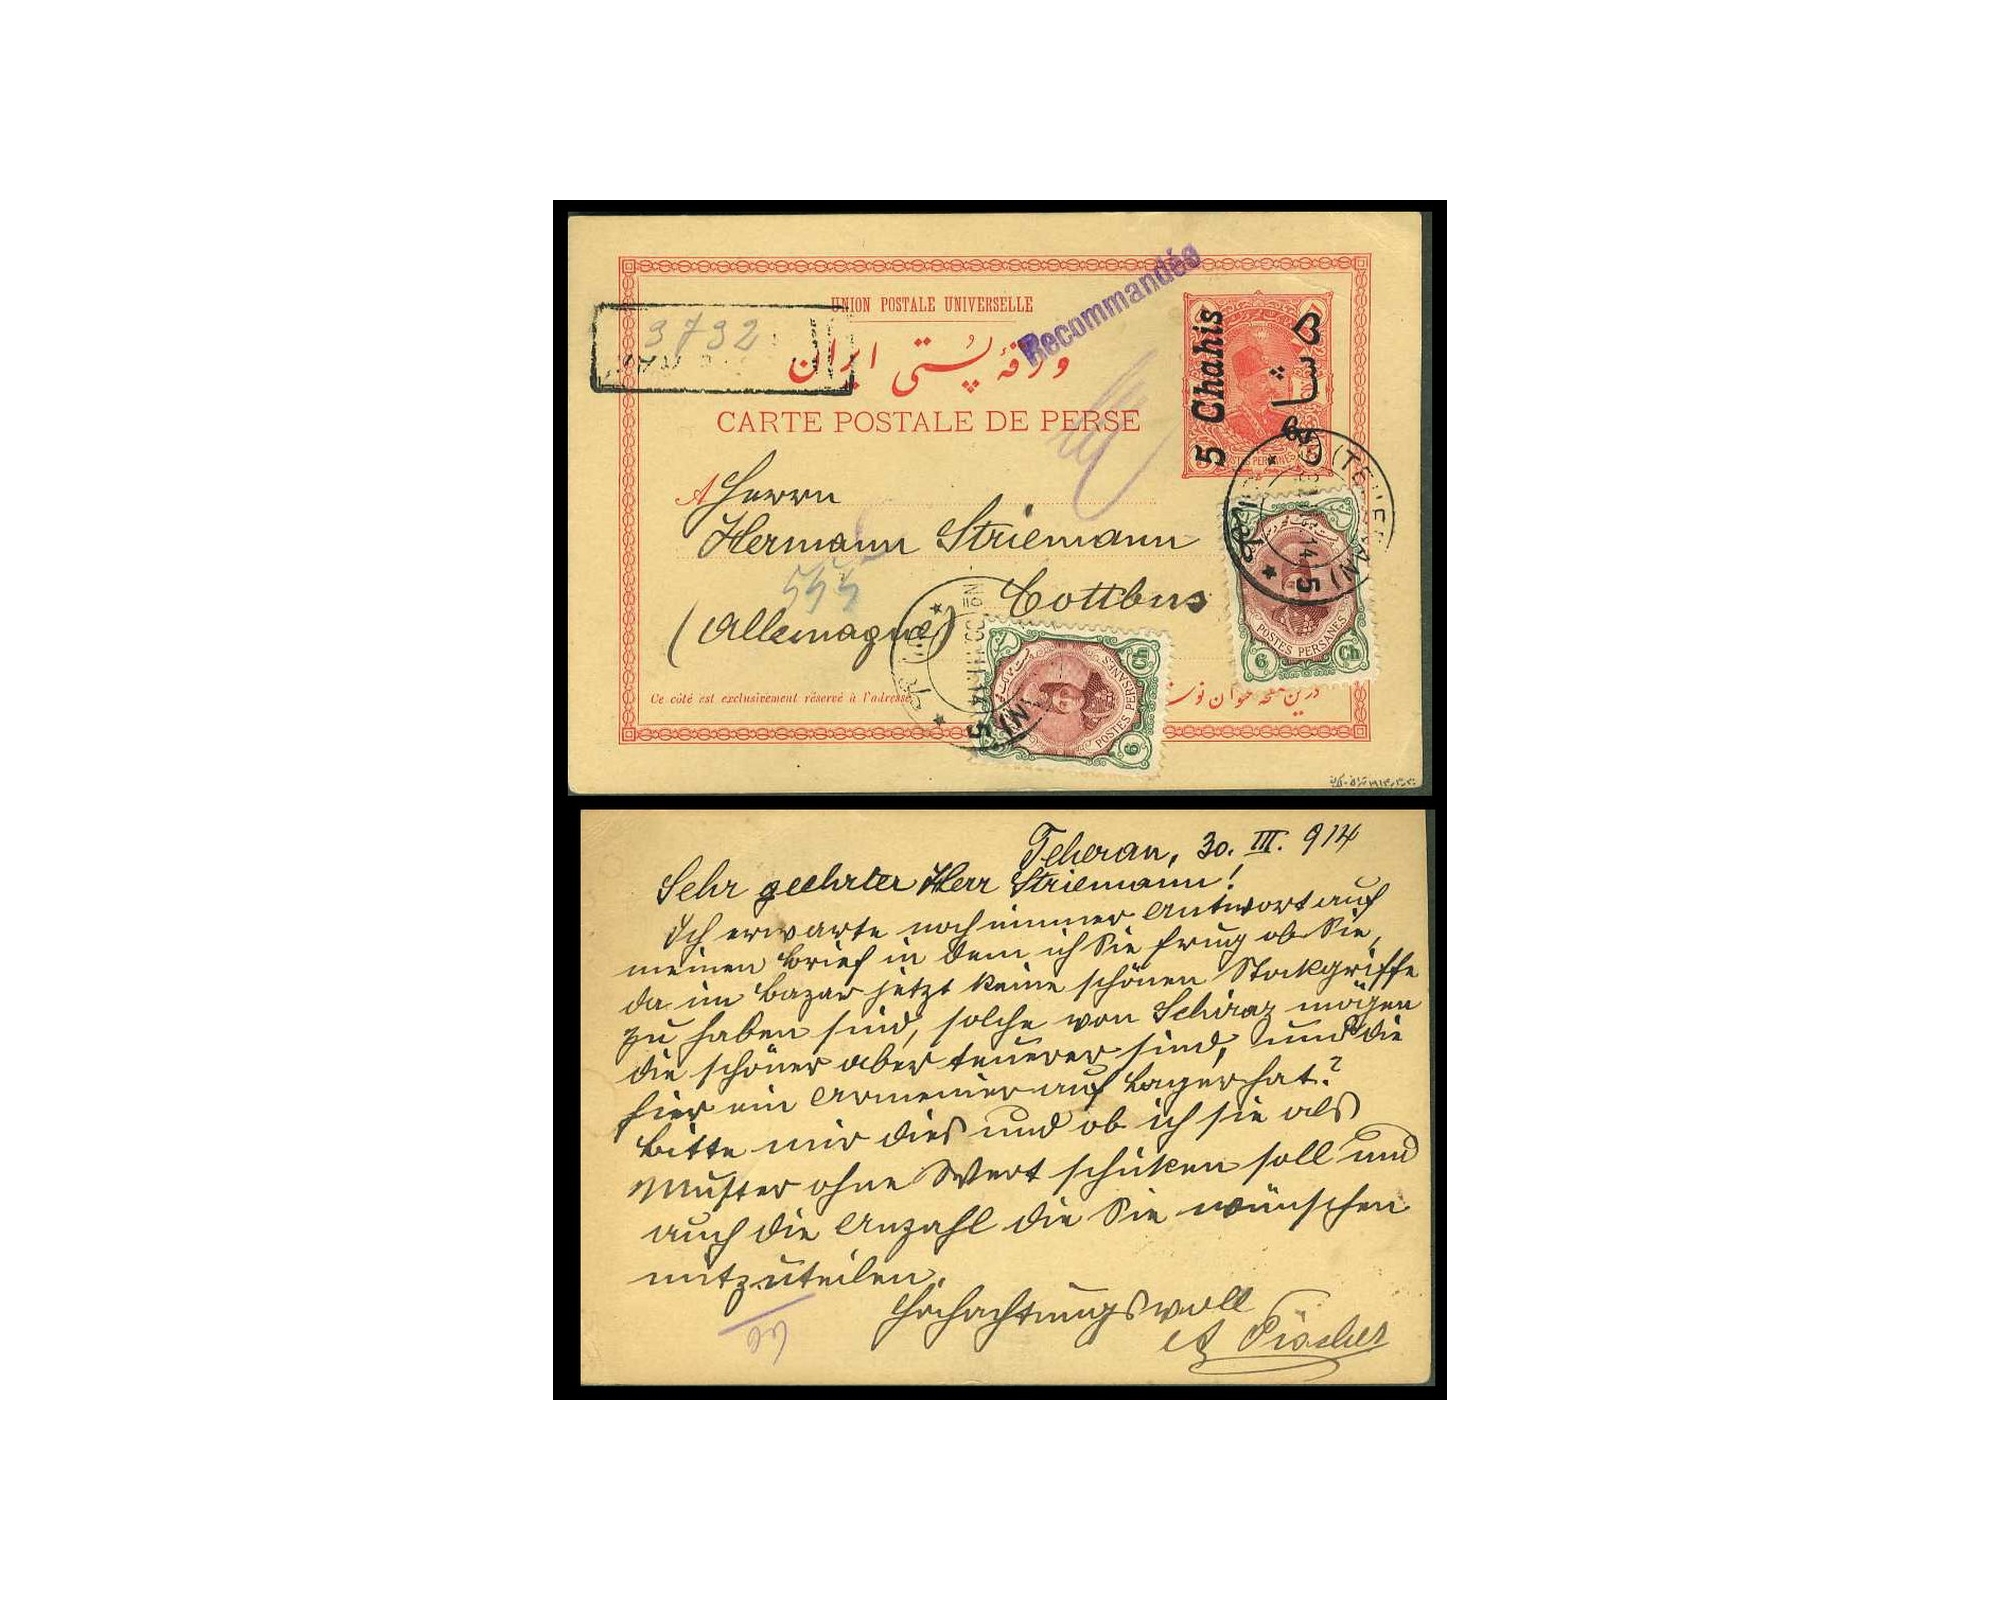 UNION POSTALE UNIVERSELLE
Recommandée
3732
ورقهٔ پُستی ایران
CARTE POSTALE DE PERSE
5 Chahis
۵ شاهی
A Herrn
Hermann Striemann
Cottbus
(Allemagne)
544
(TEHERAN)
14 5
طهران
POSTES PERSANES
6 Ch
14 5
طهران
POSTES PERSANES
6 Ch
Ce côté est exclusivement réservé à l'adresse
Teheran, 30. III. 914
Sehr geehrter Herr Striemann!
Ich erwarte noch immer Antwort auf
meinen Brief in dem ich Sie frug ob Sie,
da im Bazar jetzt keine schönen Stockgriffe
zu haben sind, solche von Schiraz mögen
die schöner aber teuerer sind, und die
hier ein Armenier auf Lager hat?
Bitte mir dies und ob ich sie als
Muster ohne Wert schicken soll und
auch die Anzahl die Sie wünschen
mitzuteilen.
Hochachtungsvoll
A Fischer